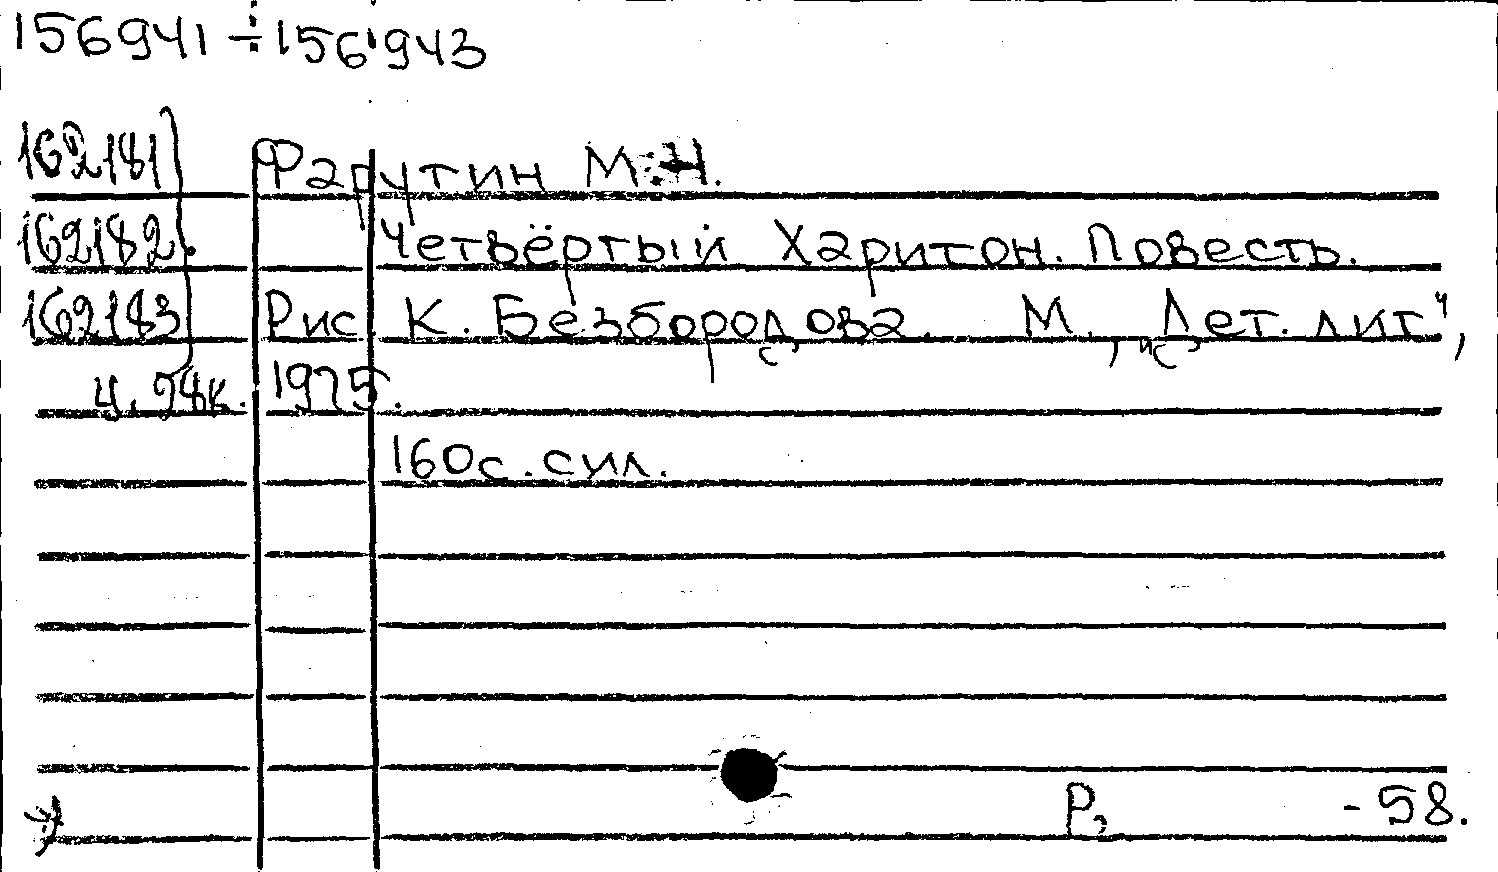 156941÷156943
162181 Фарутин М.Н.
162182. Четвёртый Харитон. Повесть.
162183 Рис. К. Безбородова. М., "Дет. лит",
ц. 98к. 1975.
160с. с ил.
Р2 -58.